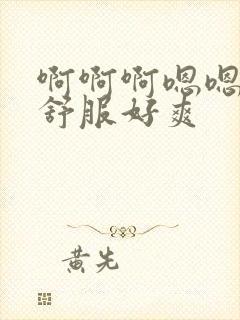 啊啊啊嗯嗯
舒服好爽
黄先